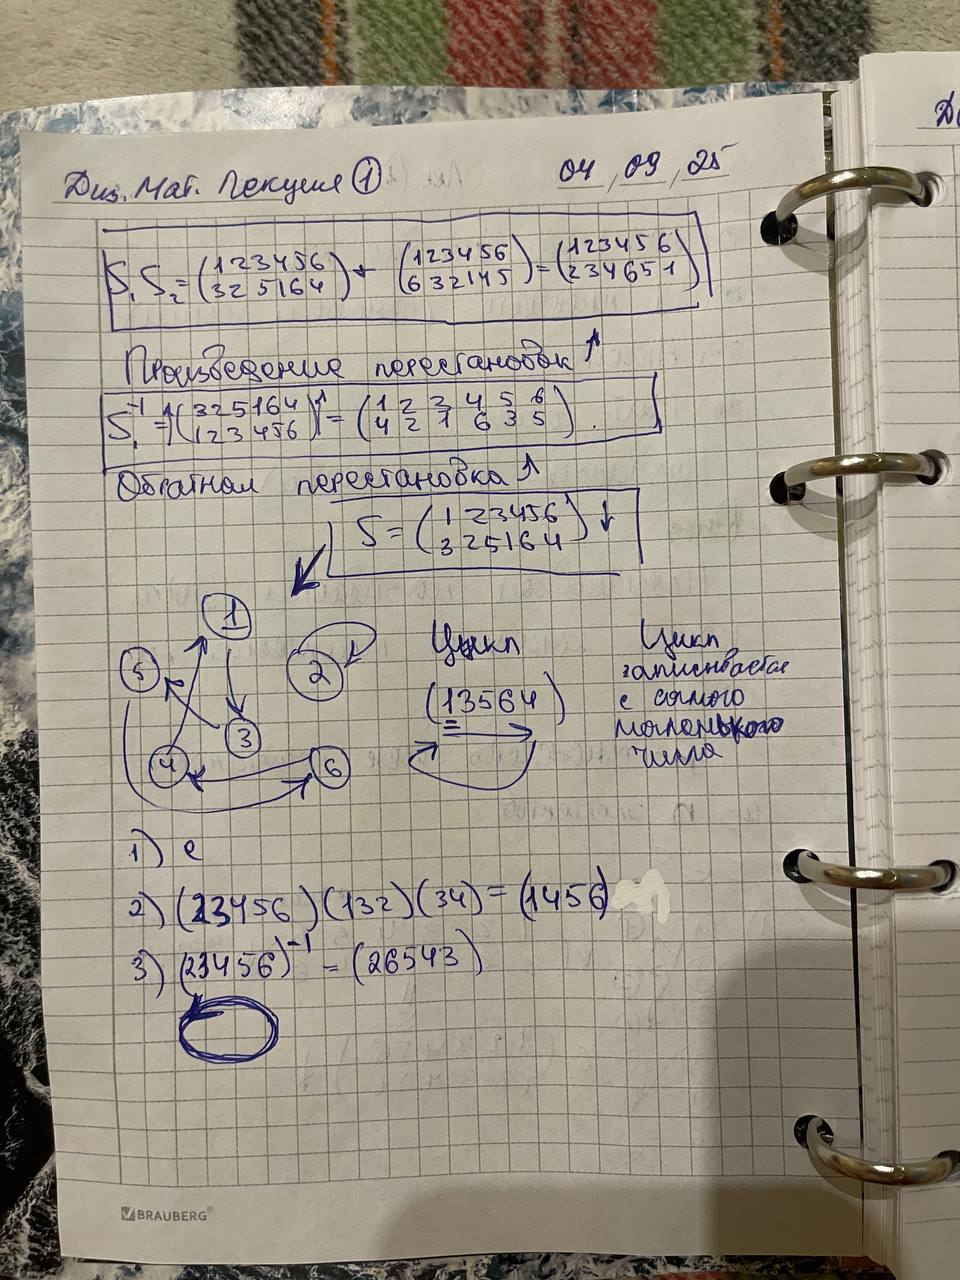 Диз. Мат. Лекция ① 04, 09, 25
S₁ S₂ = (1 2 3 4 5 6 / 3 2 5 1 6 4) + (1 2 3 4 5 6 / 6 3 2 1 4 5) = (1 2 3 4 5 6 / 2 3 4 6 5 1)
Произведение перестановок ↑
S₁⁻¹ = (3 2 5 1 6 4 / 1 2 3 4 5 6)↑ = (1 2 3 4 5 6 / 4 2 1 6 3 5).
Обратная перестановка ↑
S = (1 2 3 4 5 6 / 3 2 5 1 6 4) ↓
1
5
2
3
4
6
Цикл
(1 3 5 6 4)
Цикл
записывается
с самого
маленького
числа
1) e
2) (23456)(132)(34) = (1456)
3) (23456)⁻¹ = (26543)
BRAUBERG®